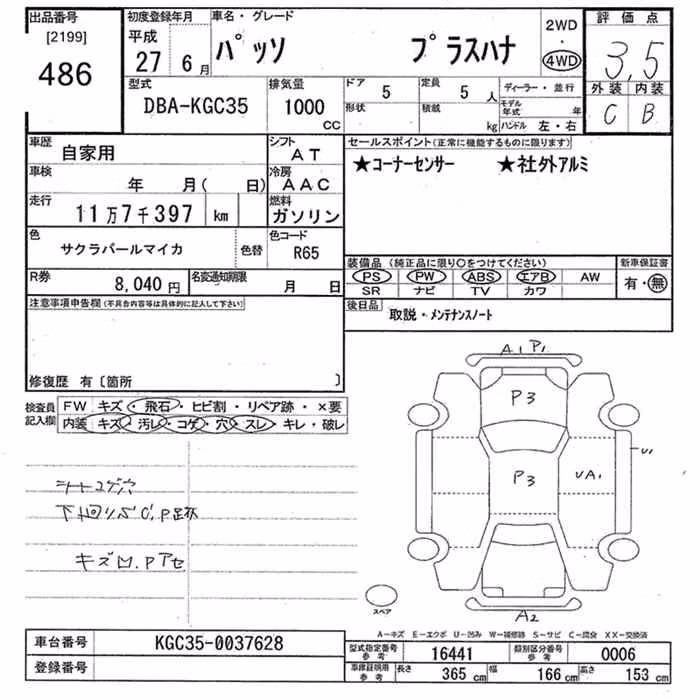 出品番号
[2199]
486
初度登録年月
平成
27 6月
車名・グレード
パッソ プラスハナ
2WD
4WD
評価点
3.5
外装 内装
C B
型式
DBA-KGC35
排気量
1000
CC
ドア 5
形状
定員 5 人
積載 kg
ディーラー・並行
モデル年式 年
ハンドル 左・右
車歴
自家用
シフト
AT
車検
年 月( 日)
冷房
AAC
走行
11万7千397 km
燃料
ガソリン
色
サクラパールマイカ
色替
色コード
R65
R券
8,040円
名変通知期限
月 日
セールスポイント(正常に機能するものに限ります)
★コーナーセンサー ★社外アルミ
装備品(純正品に限り○をつけてください)
PS PW ABS エアB AW
SR ナビ TV カワ
新車保証書
有・無
後日品
取説・メンテナンスノート
注意事項申告欄(不具合内容等は具体的に記入して下さい)
修復歴 有〔箇所 〕
検査員記入欄
FW キズ・飛石・ヒビ割・リペア跡・×要
内装 キズ・汚レ・コゲ・穴・スレ・キレ・破レ
シートコゲ穴
キズ凹.Pアセ
A1 P1
P3
P3
UA1
U1
A2
スペア
A−キズ E−エクボ U−凹み W−補修跡 S−サビ C−腐食 XX−交換済
車台番号
KGC35-0037628
登録番号
型式指定番号 参考
16441
類別区分番号 参考
0006
車庫証明用 参考
長さ 365 cm
幅 166 cm
高さ 153 cm